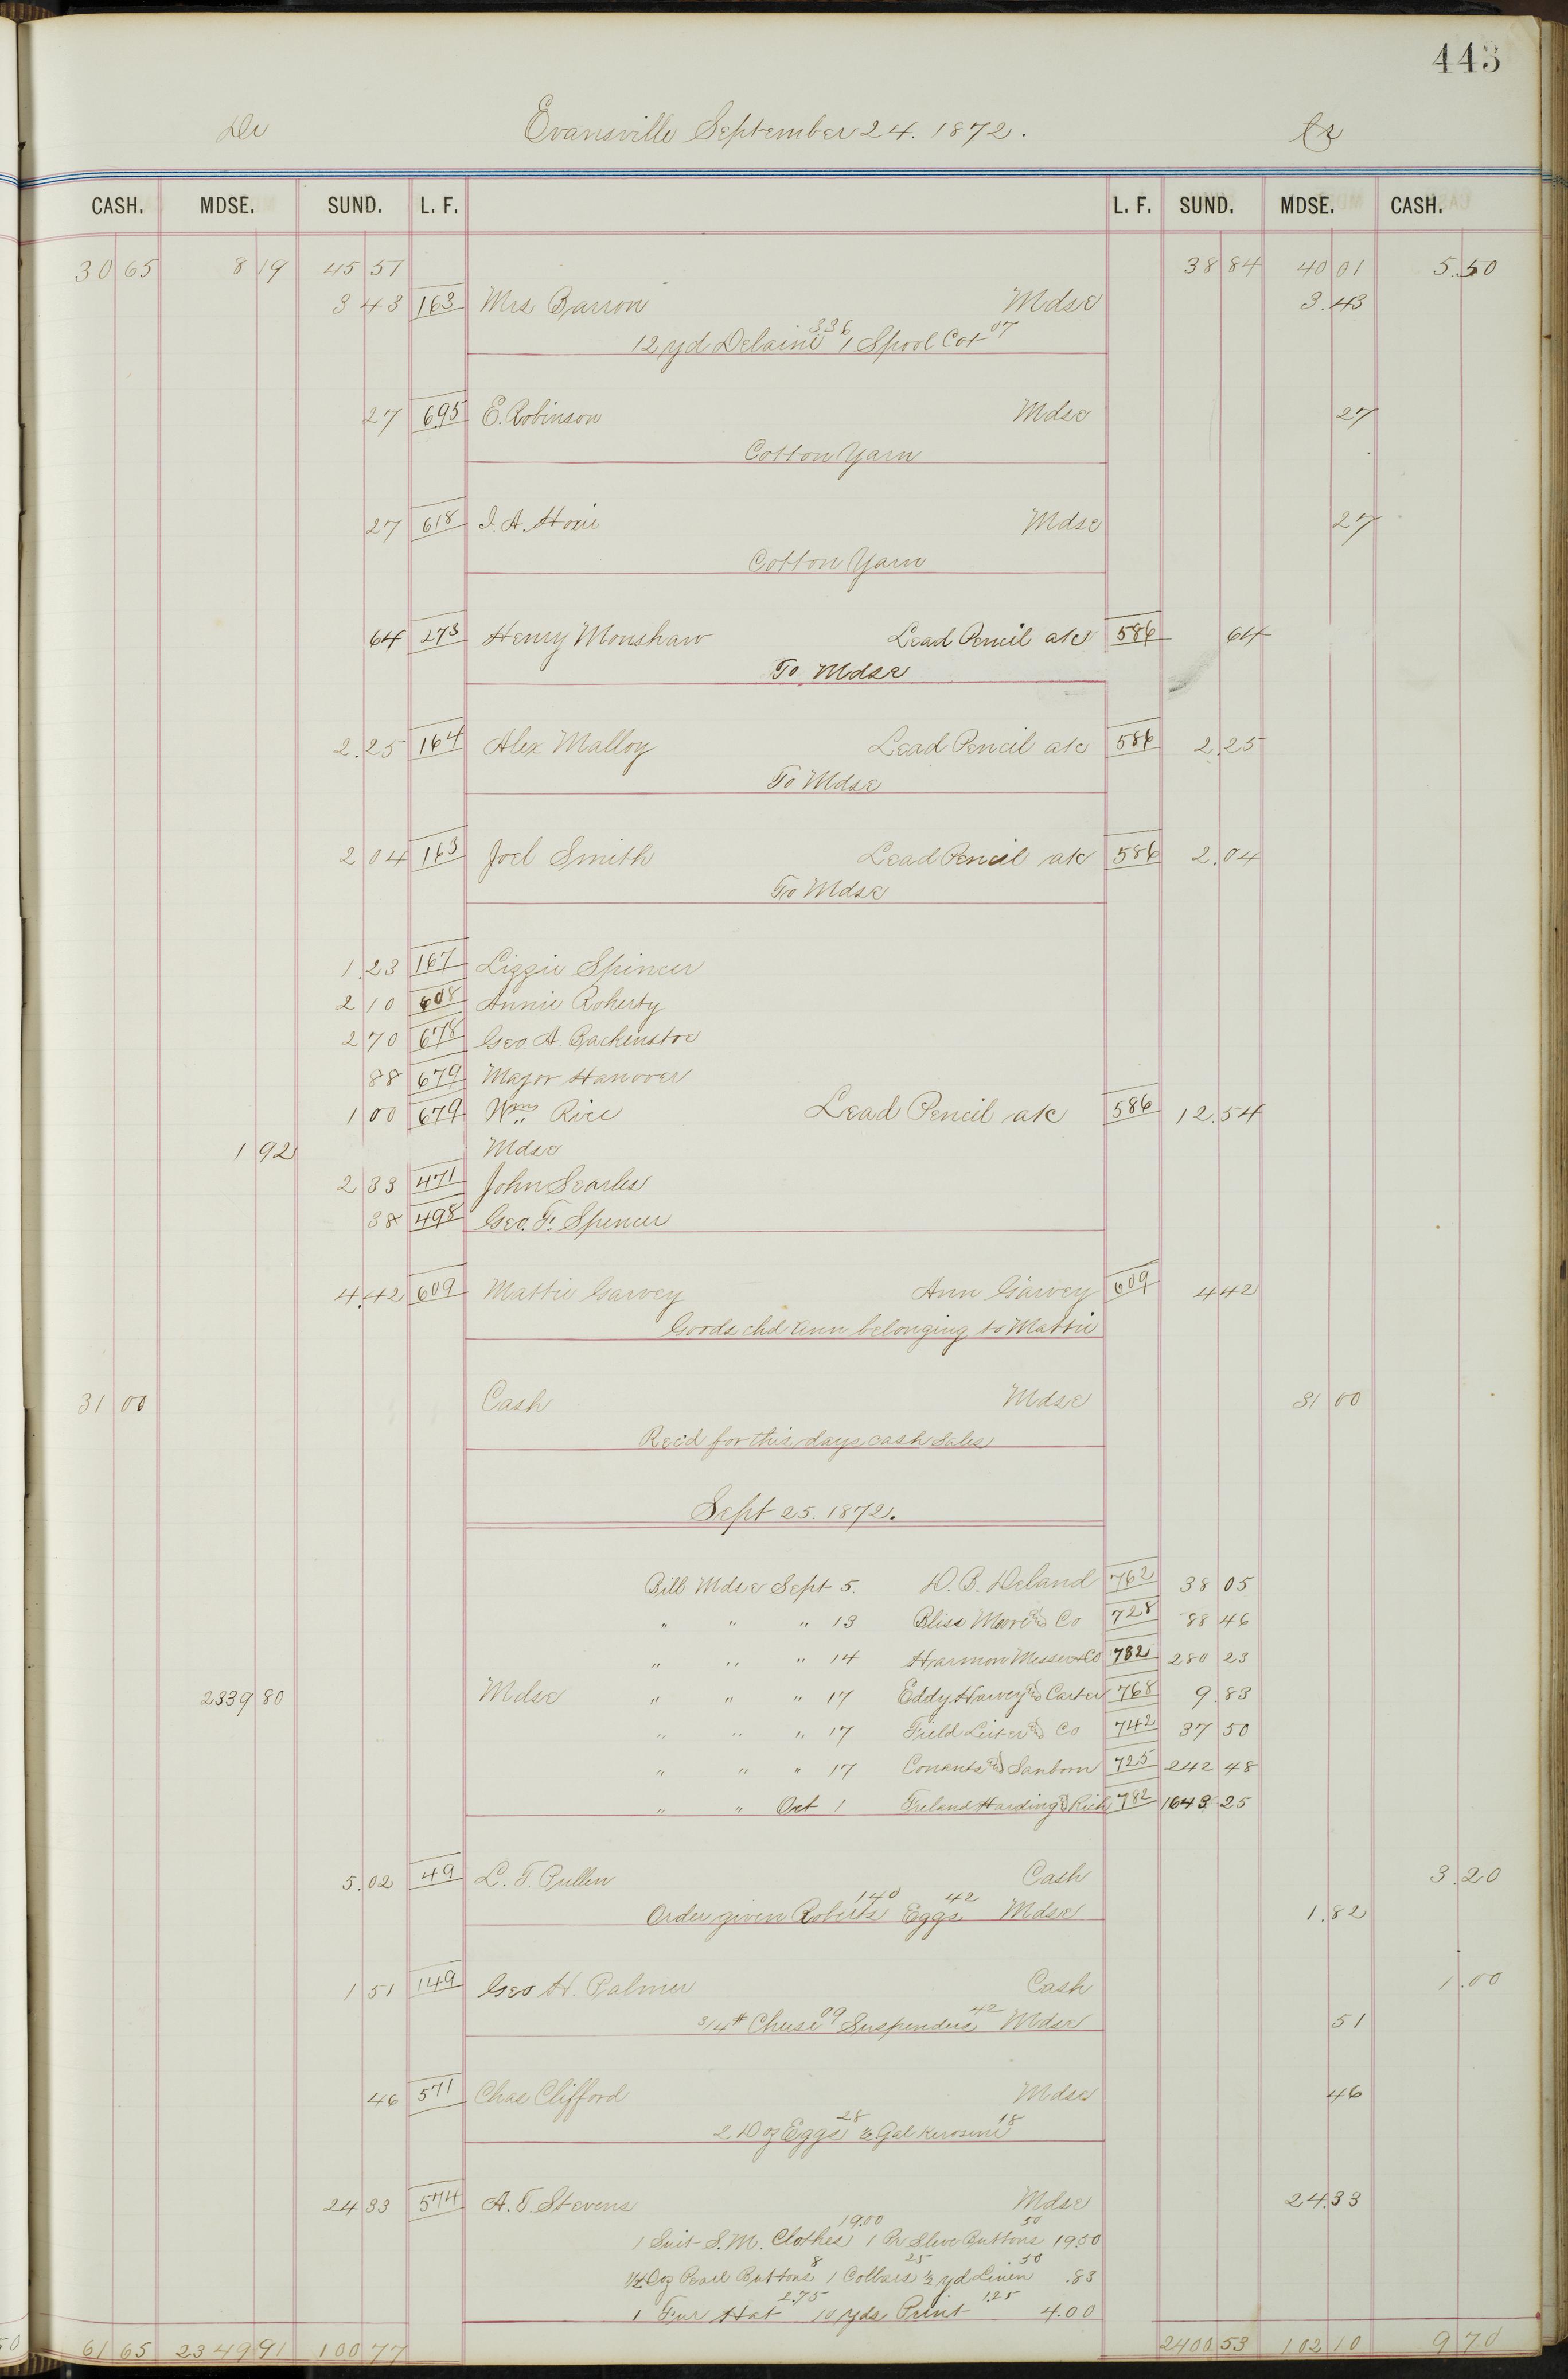 443
Dr Evansville September 24. 1872. Cr
CASH. MDSE. SUND. L. F. L. F. SUND. MDSE. CASH.
30 65 8 19 45 57 38 84 40 01 5.50
3 43 163 Mrs Barron Mdse 3.43
12 yd Delaine 3 36 1 Spool Cot 07
27 695 E. Robinson Mdse 27
Cotton Yarn
27 618 I. A. Hoxie Mdse 27
Cotton Yarn
64 273 Henry Monshaw Lead Pencil a/c 586 64
To Mdse
2.25 164 Alex Malloy Lead Pencil a/c 586 2.25
To Mdse
2 04 163 Joel Smith Lead Pencil a/c 586 2.04
To Mdse
1.23 167 Lizzie Spincer
2 10 608 Annie Roherty
2 70 678 Geo. A. Backenstoe
88 679 Major Hanover
1 00 679 Wm Rice Lead Pencil a/c 586 12.54
1 92 Mdse
2 33 471 John Searles
38 498 Geo. F. Spencer
4.42 609 Mattie Garvey Ann Garvey 609 4 42
Goods chd Ann belonging to Mattie
31 00 Cash Mdse 31 00
Recd for this days cash sales
Sept 25. 1872.
Bill Mdse Sept 5. D. B. Deland 762 38 05
" " " 13 Bliss Moore and Co 728 88 46
" " " 14 Harmon Messer & Co 782 280 23
2339 80 Mdse " " " 17 Eddy Harvey and Carter 768 9.83
" " " 17 Field Leiter and Co 742 37 50
" " " 17 Conants and Sanborn 725 242 48
" " Oct 1 Harding & Rich 782 1643 25
5.02 49 L. T. Pullen Cash 3.20
Order given Roberts 140 Eggs 42 Mdse 1.82
1 51 149 Geo H. Palmer Cash 1.00
3/4 # Cheese 09 Suspenders 42 Mdse 51
46 571 Chas Clifford Mdse 46
2 Doz Eggs 28 1/2 Gal Kerosene 18
24 33 574 A. T. Stevens Mdse 24.33
1 Suit S. M. Clothes 19.00 1 Pr Sleve Buttons 50 19.50
1/2 Doz Pearl Buttons 8 1 Collars 25 1/2 yd Linen 50 .83
1 Fur Hat 2.75 10 yds Print 1.25 4.00
61 65 2349 91 100 77 2400 53 102 10 9 70